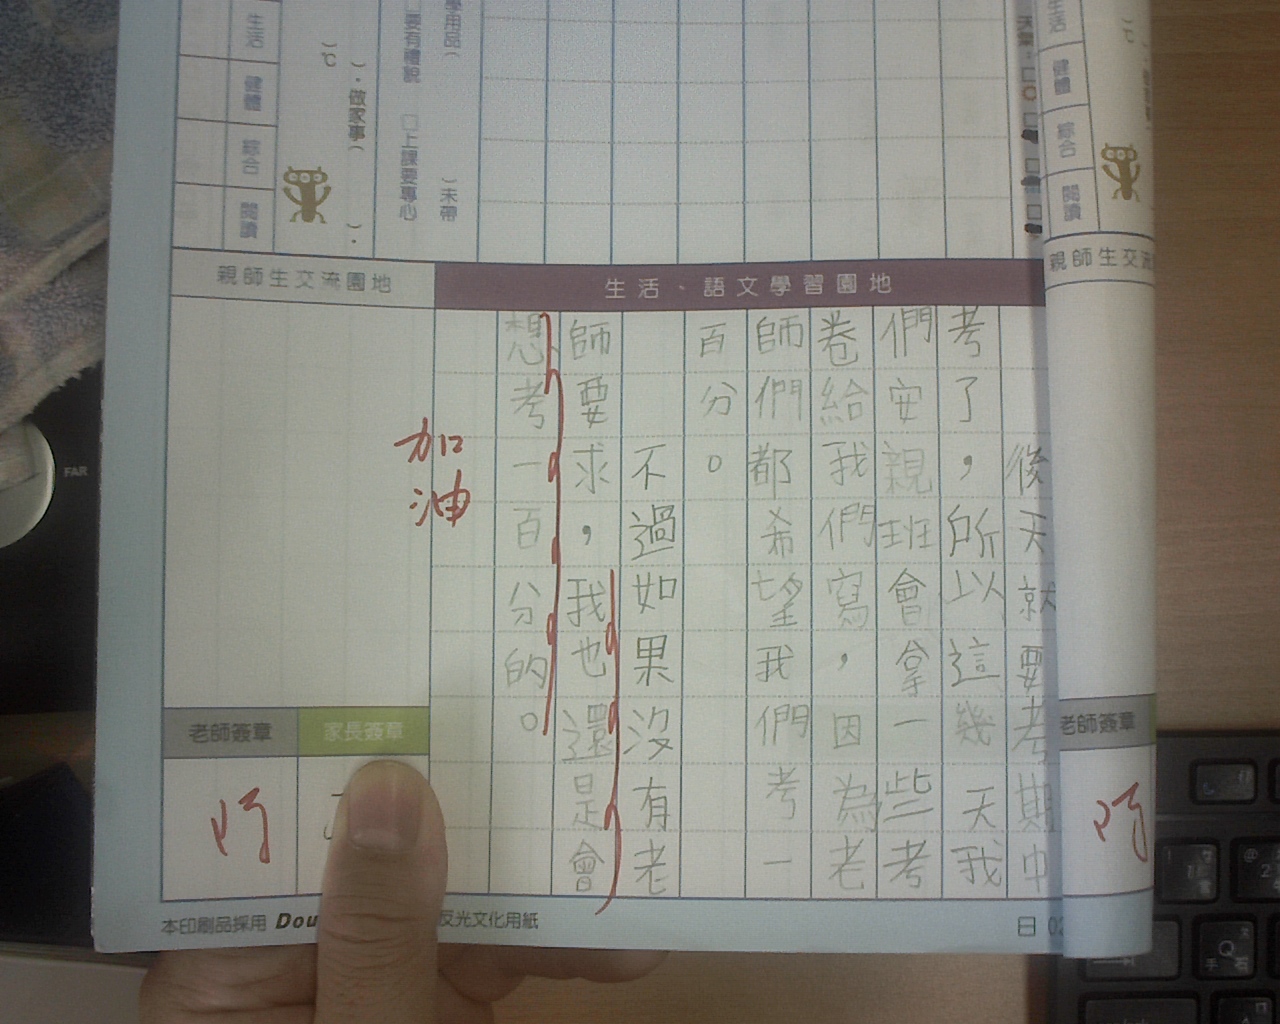 生活
健體
綜合
閱讀
)℃
)，做家事(
)．
□要有禮貌
□上課要專心
學用品(
)未帶
生活
健體
綜合
閱讀
)℃
親師生交流園地
生活、語文學習園地
親師生交流
後天就要考期中
考了，所以這幾天我
們安親班會拿一些考
卷給我們寫，因為老
師們都希望我們考一
百分。
不過如果沒有老
師要求，我也還是會
想考一百分的。
加油
老師簽章
家長簽章
老師簽章
本印刷品採用 Dou
反光文化用紙
日 02
FAR
Q
手